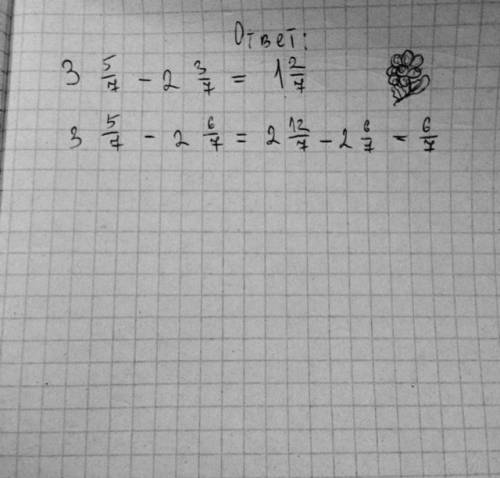 Ответ:
3 5/7 - 2 3/7 = 1 2/7
3 5/7 - 2 6/7 = 2 12/7 - 2 6/7 = 6/7